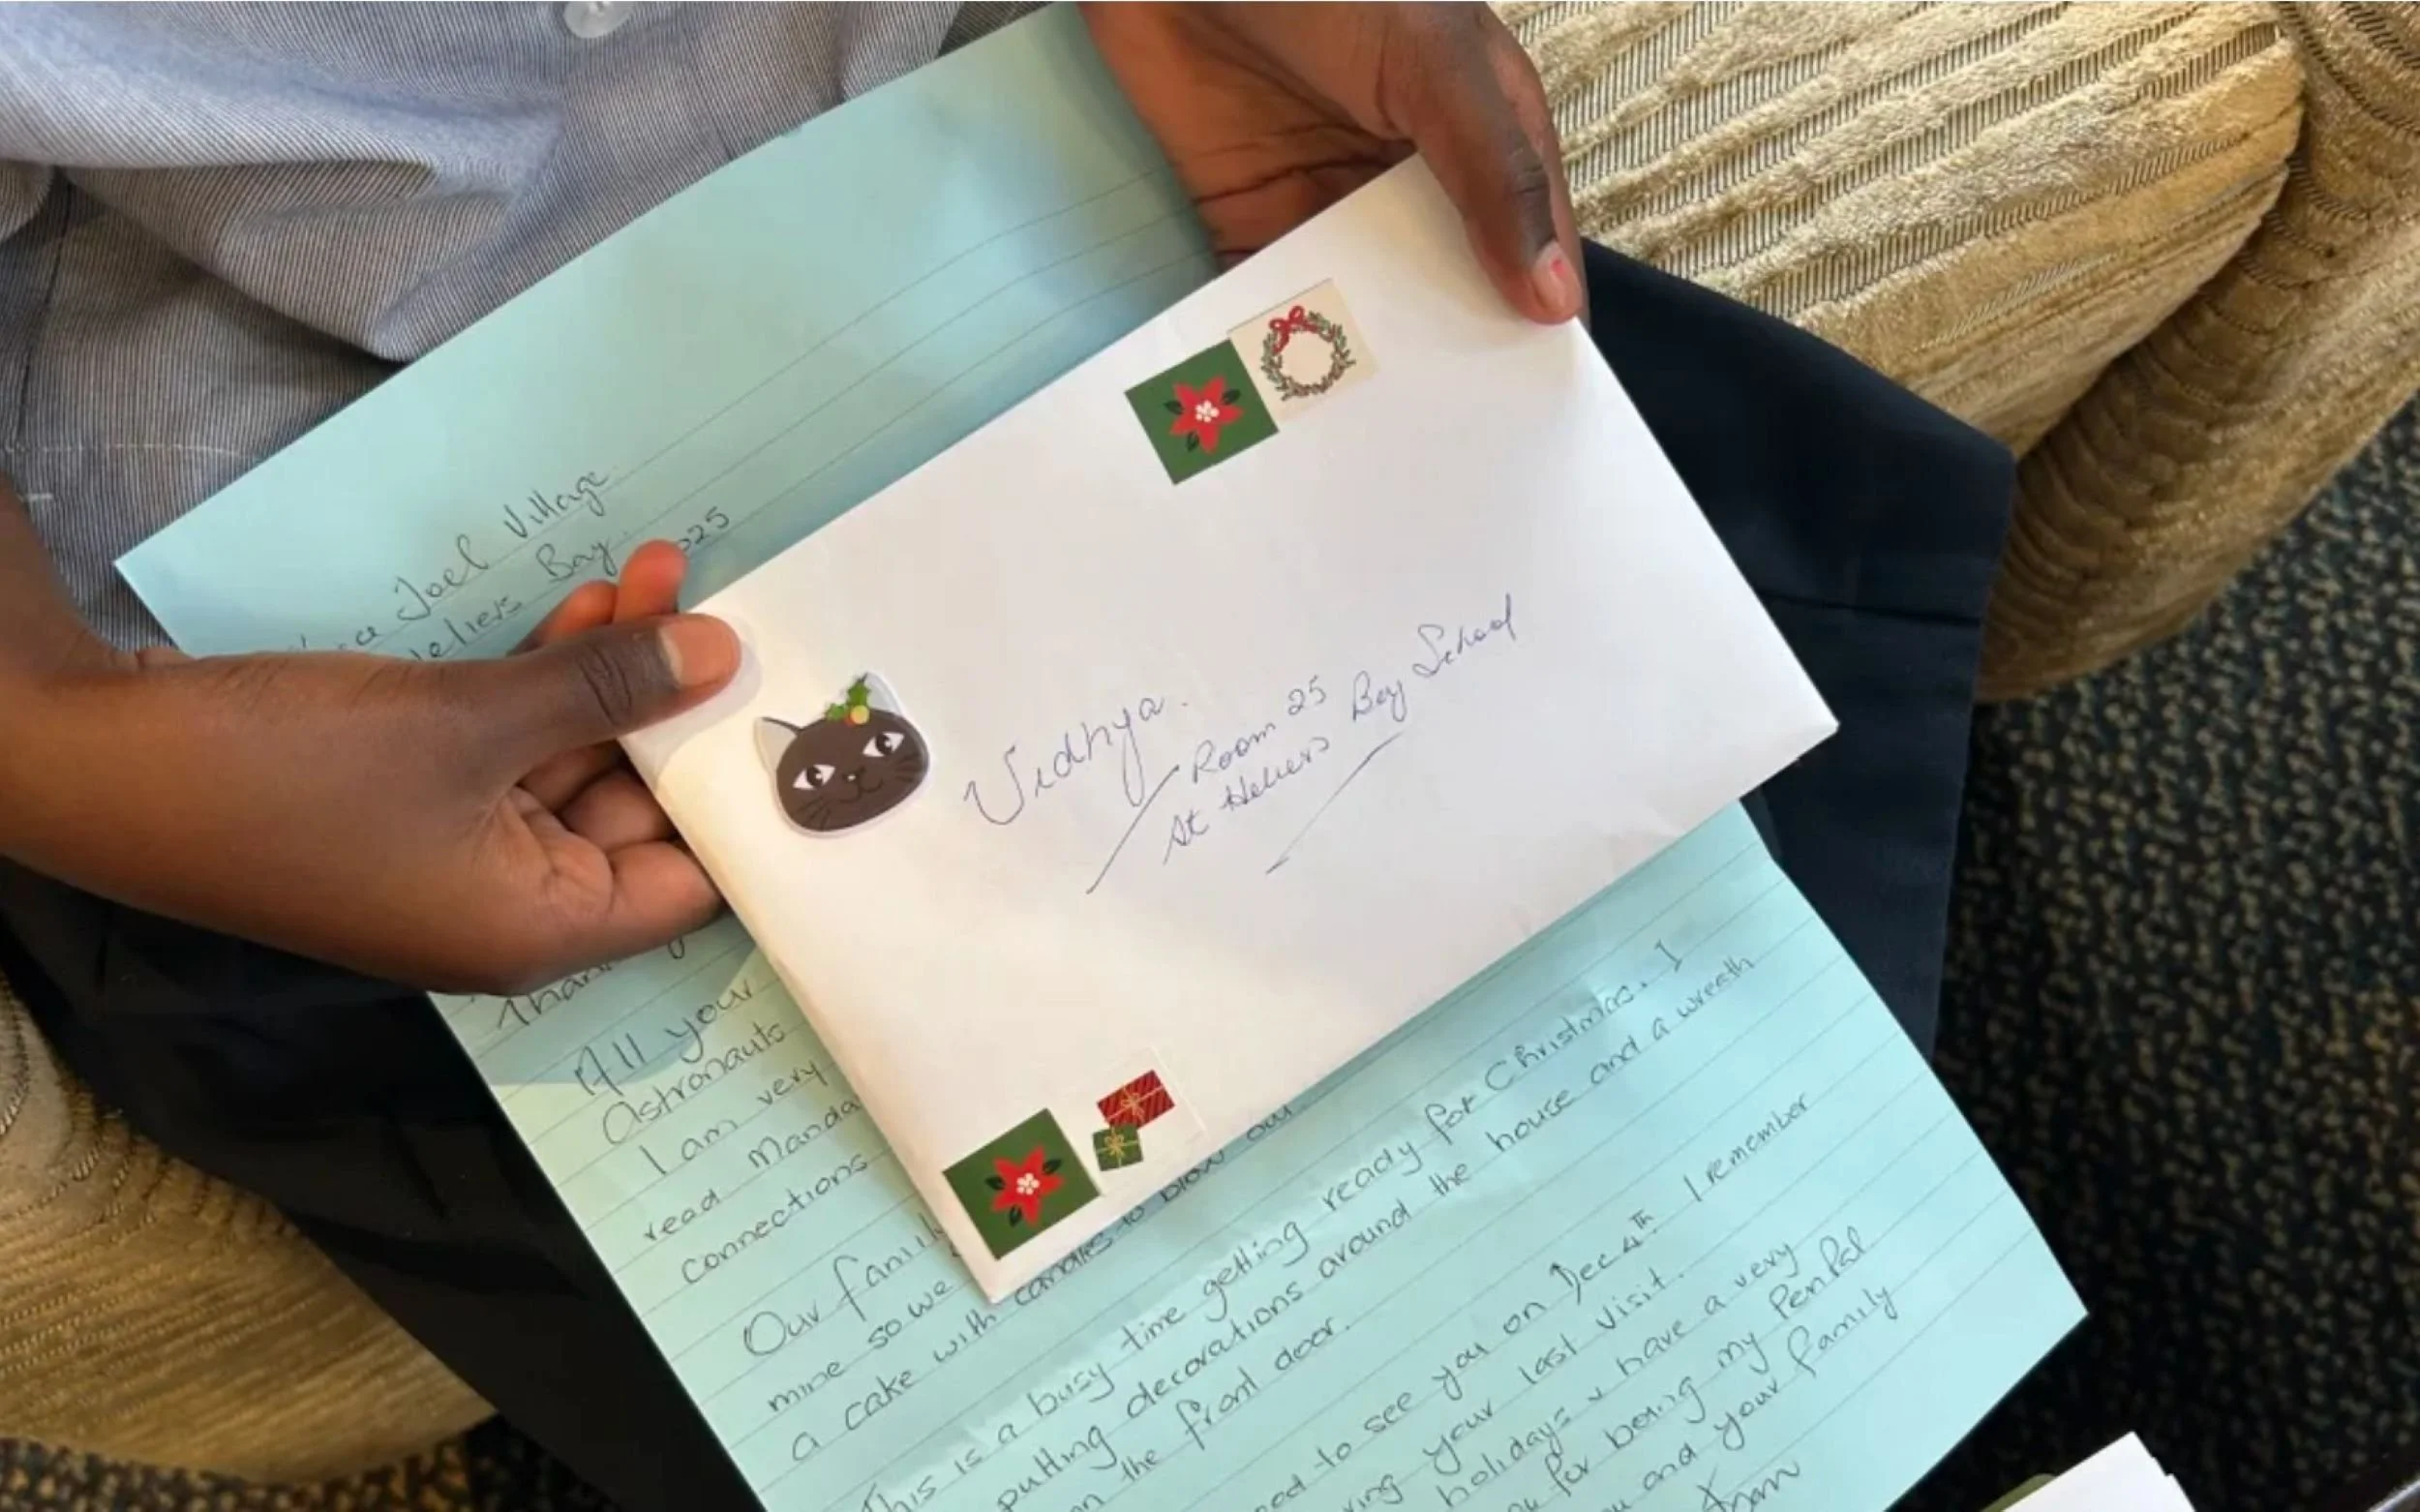 Joel Village
Heliers Bay.
2025
Vidhya.
Room 25
St Heliers Bay School
All your
Astronauts
I am very
read
connections
Our family
mine so we
a cake with candles to blow out.
This is a busy time getting ready for Christmas. I
putting decorations around the house and a wreath
on the front door.
to see you on Dec 4th. I remember
your last visit.
holidays & have a very
for being my Penpal
and your family